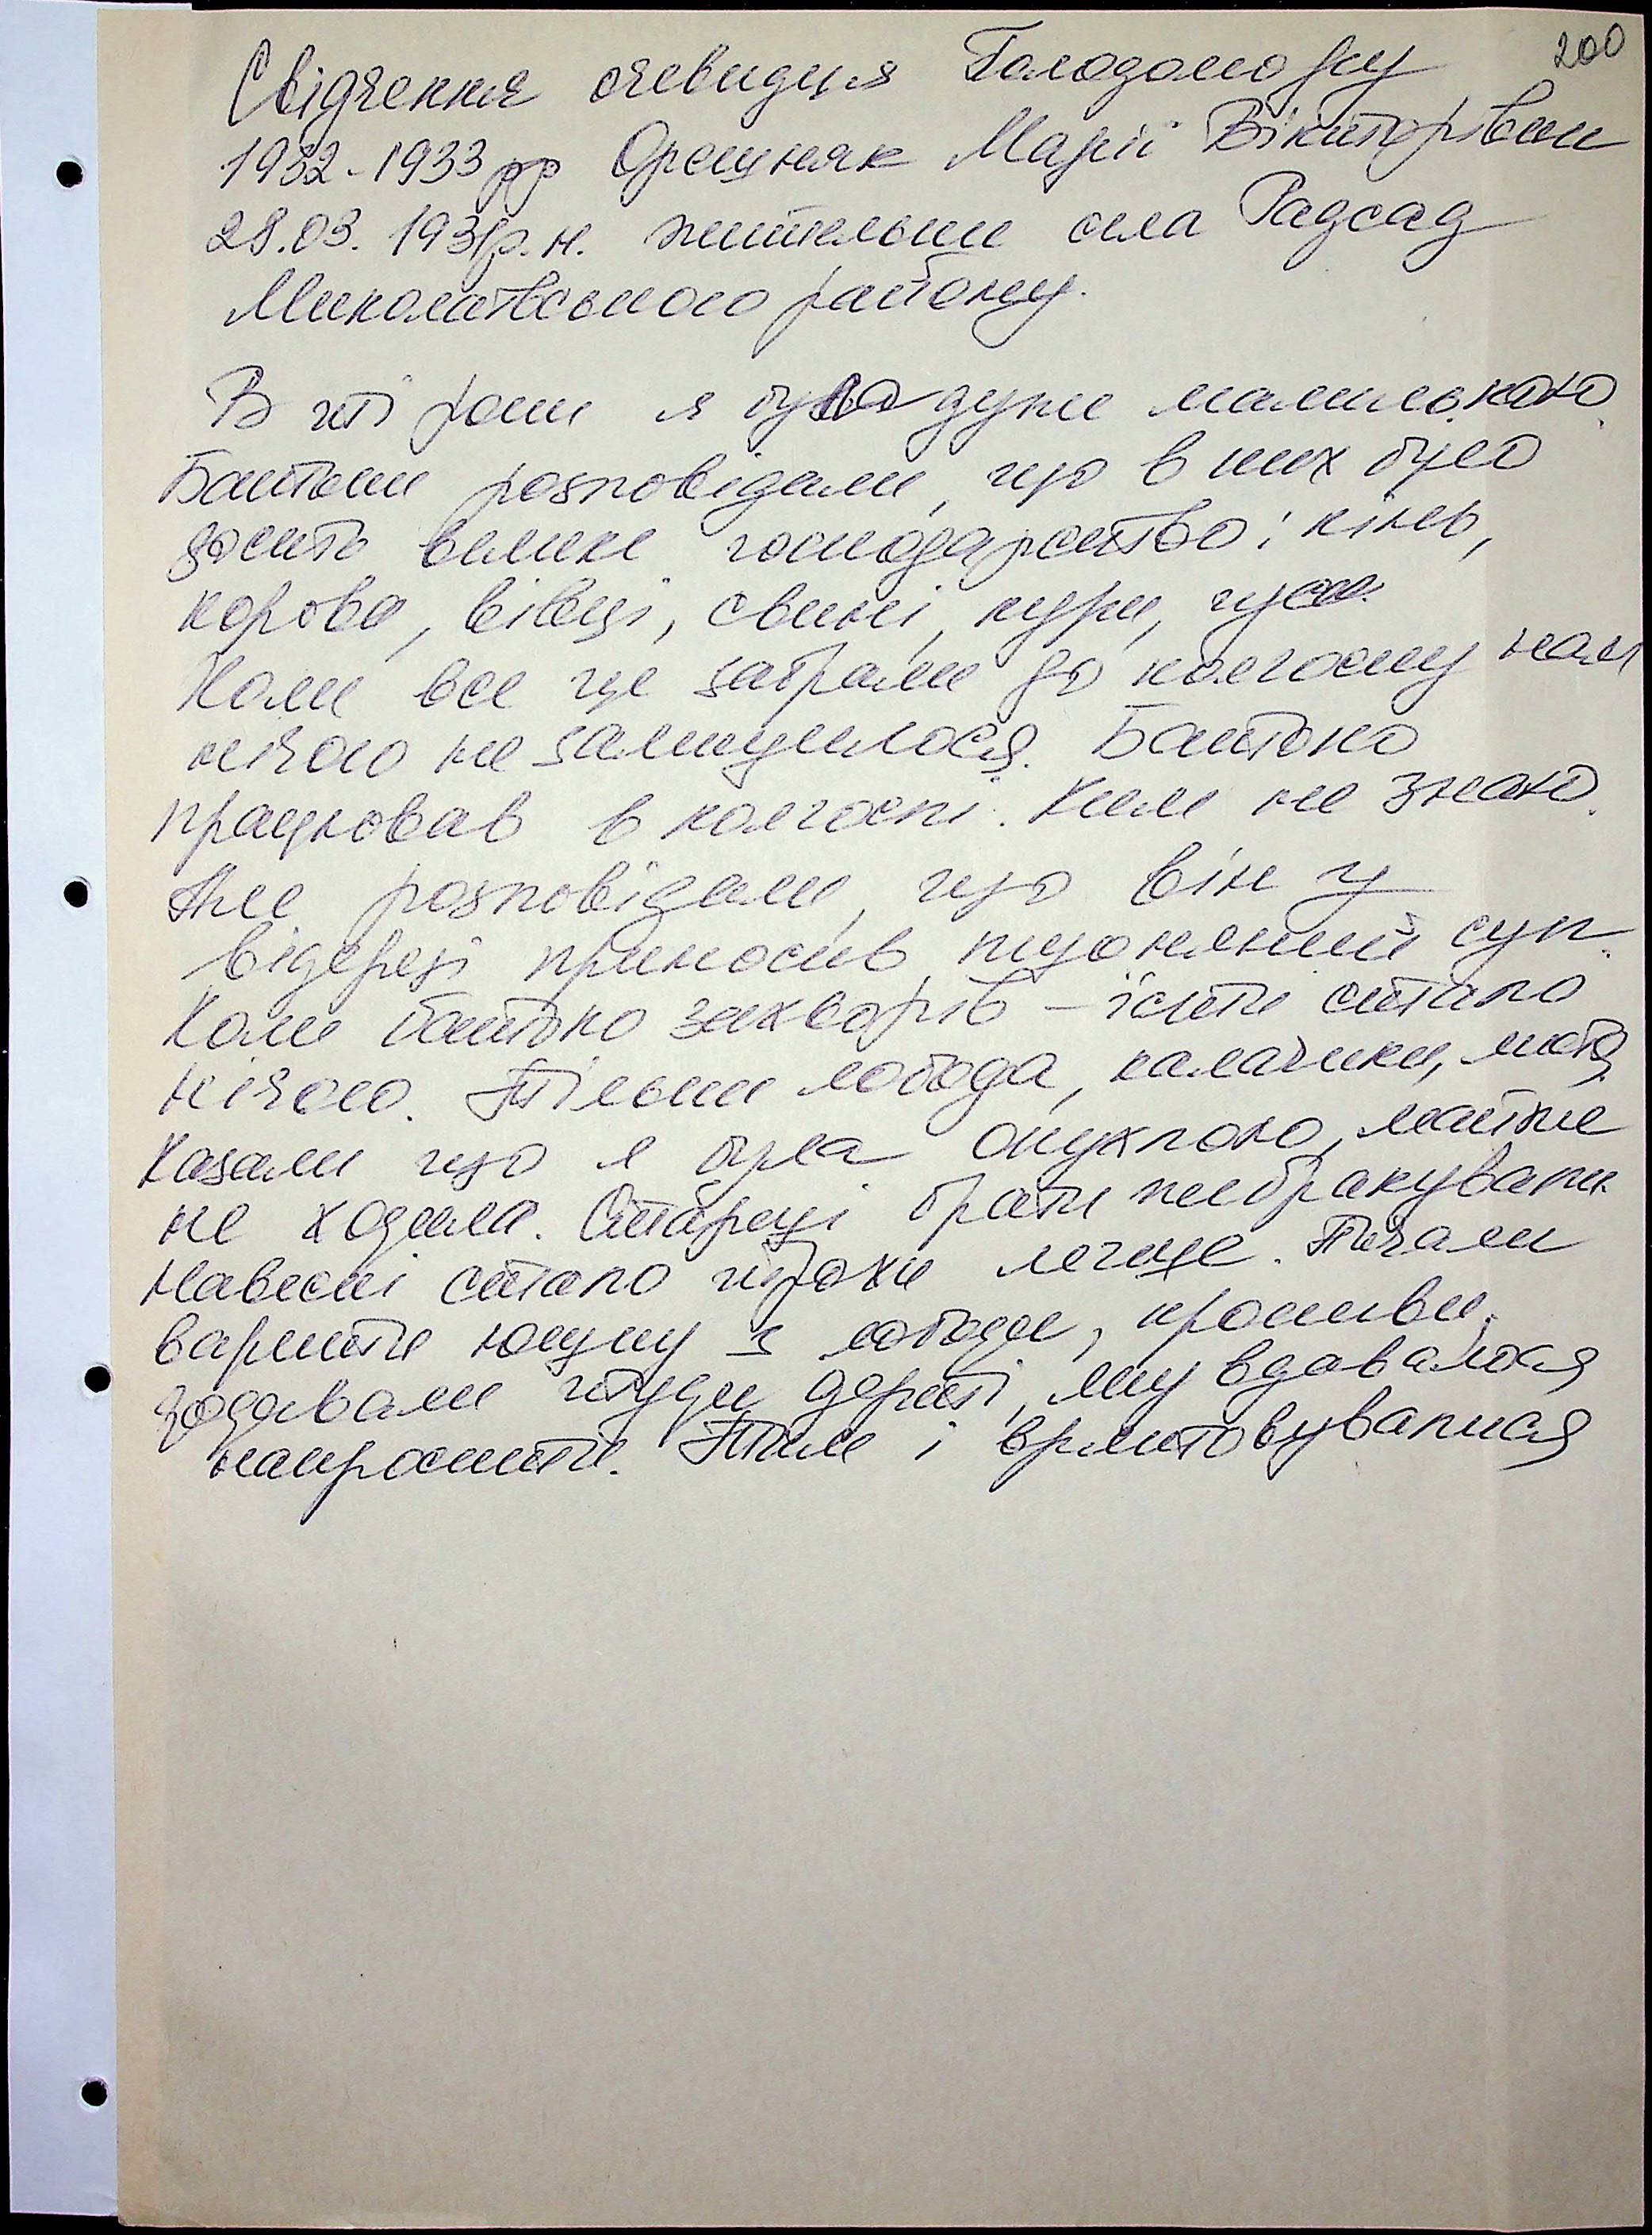 200
Свідчення очевидця Голодомору
1932-1933 рр Орещняк Марії Вікторівни
28.03.1931р.н. жительки села Радсад
Миколаївського району.
В ті роки я була дуже маленькою.
Батьки розповідали, що в них було
досить велике господарство: кінь,
корова, вівці, свині, кури, гуси.
Коли все це забрали до колгоспу нам
нічого не залишилося. Батько
працював в колгоспі. Ким не знаю.
Але розповідали, що він у
відерці приносив пшоняний суп.
Коли батько захворів – їсти стало
нічого. Тільки лобода, калачики,
Казали що я була опухлою, майже
не ходила. Старці брати жебракували
Навесні стало трохи легше. Почали
варити юшку з лободи, кропиви,
додавали туди дерті, яку вдавалося
напросити. Тим і врятовувалися